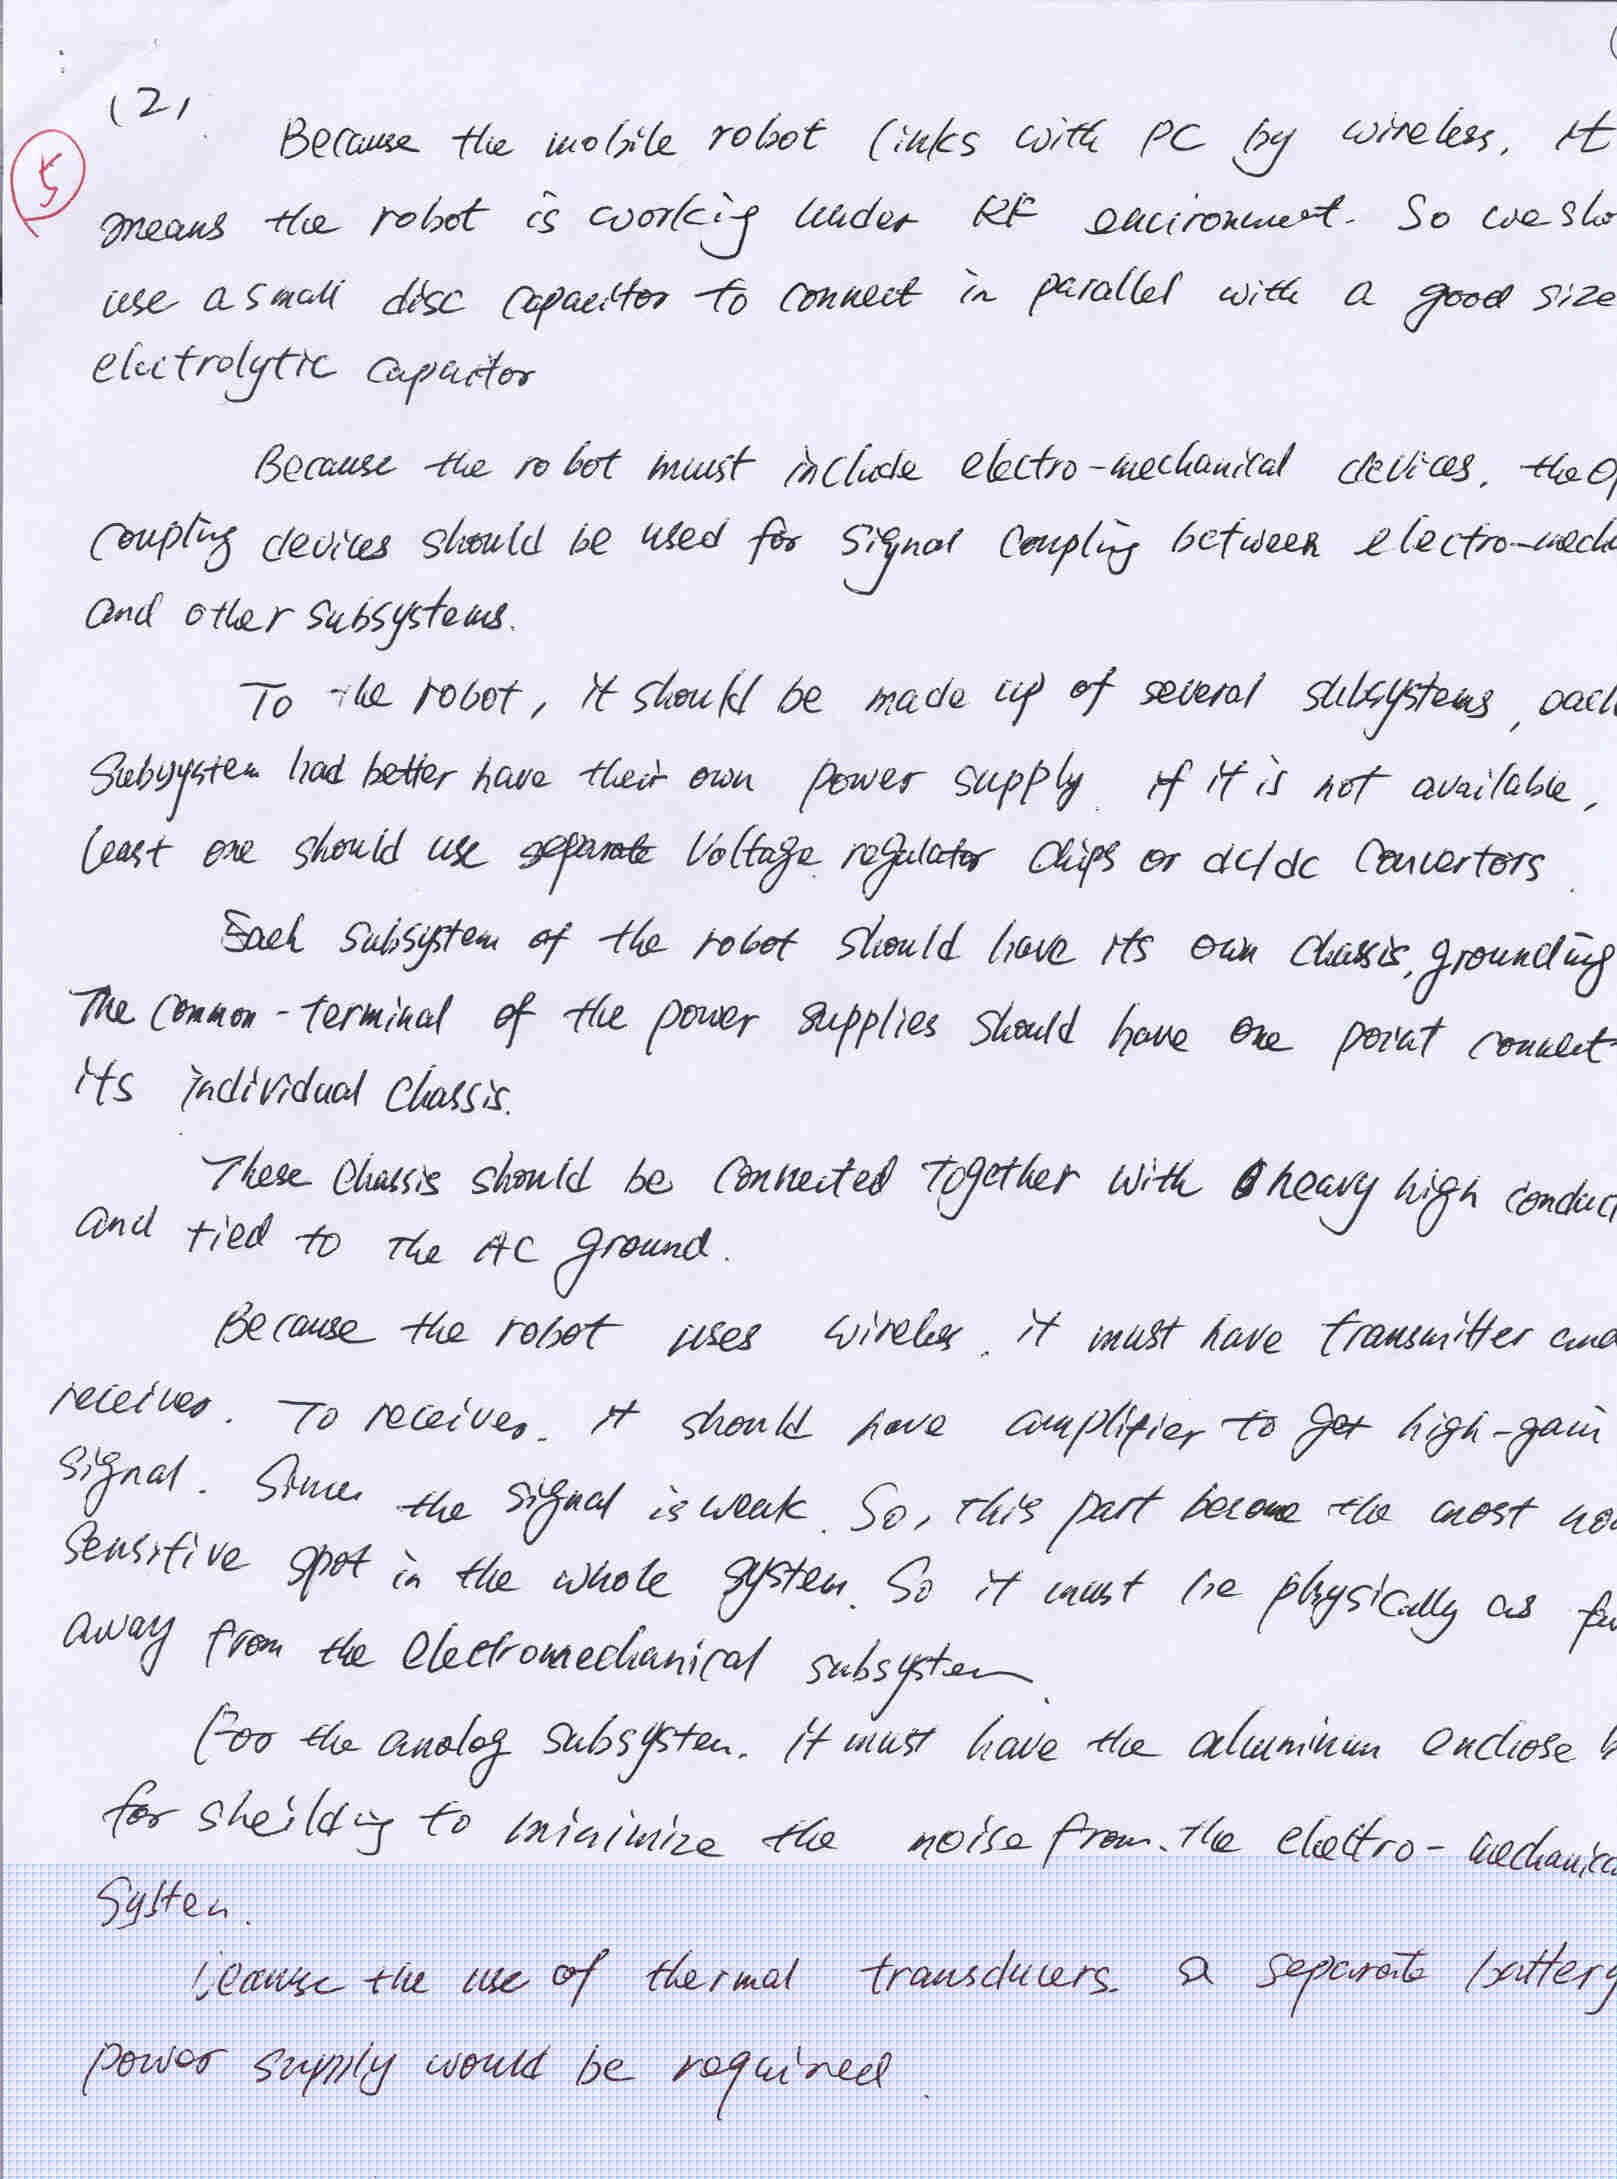 (2)
5
Because the mobile robot links with PC by wireless. It
means the robot is working under RF environment. So we sho
use a small disc capacitor to connect in parallel with a good size
electrolytic capacitor
Because the robot must include electro-mechanical devices, the op
coupling devices should be used for signal coupling between electro-mecha
and other subsystems.
To the robot, it should be made up of several subsystems, each
subsystem had better have their own power supply. if it is not available,
least one should use separate voltage regulator chips or dc/dc convertors.
Each subsystem of the robot should have its own chassis, grounding
The common-terminal of the power supplies should have one point connect
its individual chassis.
These chassis should be connected together with heavy high conduc
and tied to the AC ground.
Because the robot uses wireless. it must have transmitter and
receiver. To receiver. it should have amplifier to get high-gain
signal. Since the signal is weak. So, this part become the most noi
sensitive spot in the whole system. So it must be physically as far
away from the electromechanical subsystem.
For the analog subsystem. it must have the aluminum enclose b
for sheilding to minimize the noise from the electro-mechanica
System.
because the use of thermal transducers. a separate battery
power supply would be required.